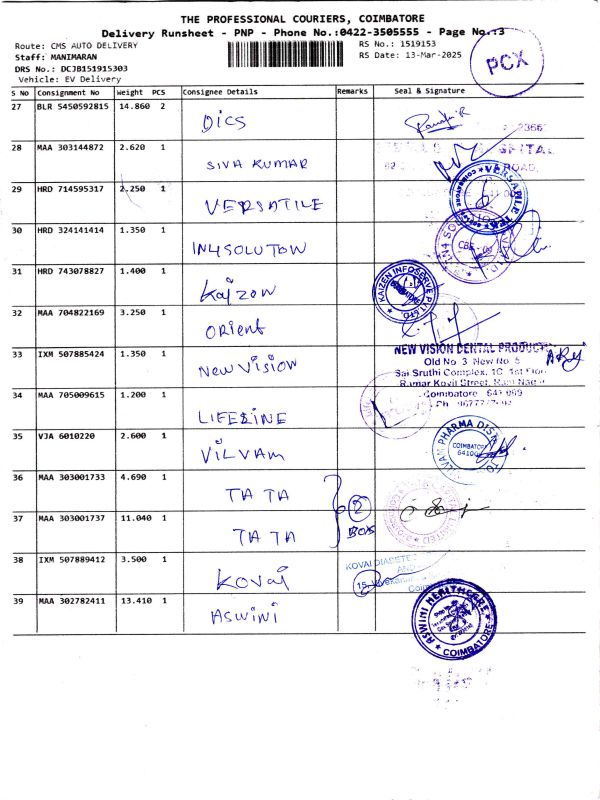 THE PROFESSIONAL COURIERS, COIMBATORE
Delivery Runsheet - PNP - Phone No.:0422-3505555 - Page No.:3
Route: CMS AUTO DELIVERY
RS No.: 1519153
Staff: MANIMARAN
RS Date: 13-Mar-2025
DRS No.: DCJB151915303
Vehicle: EV Delivery
PCX
S No Consignment No Weight PCS Consignee Details Remarks Seal & Signature
27 BLR 5450592815 14.860 2 DICS
28 MAA 303144872 2.620 1 SIVA KUMAR
29 HRD 714595317 2.250 1 VERSATILE
30 HRD 324141414 1.350 1 IN4SOLUTOW
31 HRD 743078827 1.400 1 Kaizow
KAIZEN INFOSERVE PVT. LTD.
32 MAA 704822169 3.250 1 Orient
33 IXM 507885424 1.350 1 New Vision
NEW VISION DENTAL PRODUCTS
Old No. 3 New No. 5
Sai Sruthi Complex, 1C 1st Floor
Ramar Kovil Street, Ram Nagar
Coimbatore 641 069
34 MAA 705009615 1.200 1 LIFELINE
35 VJA 6010220 2.600 1 VILVAM
COIMBATORE
36 MAA 303001733 4.690 1 TATA
37 MAA 303001737 11.040 1 TATA
2 BOXS
38 IXM 507889412 3.500 1 KOVAI
KOVAI DIABETES
39 MAA 302782411 13.410 1 ASWINI
ASWINI HEALTHCARE
COIMBATORE